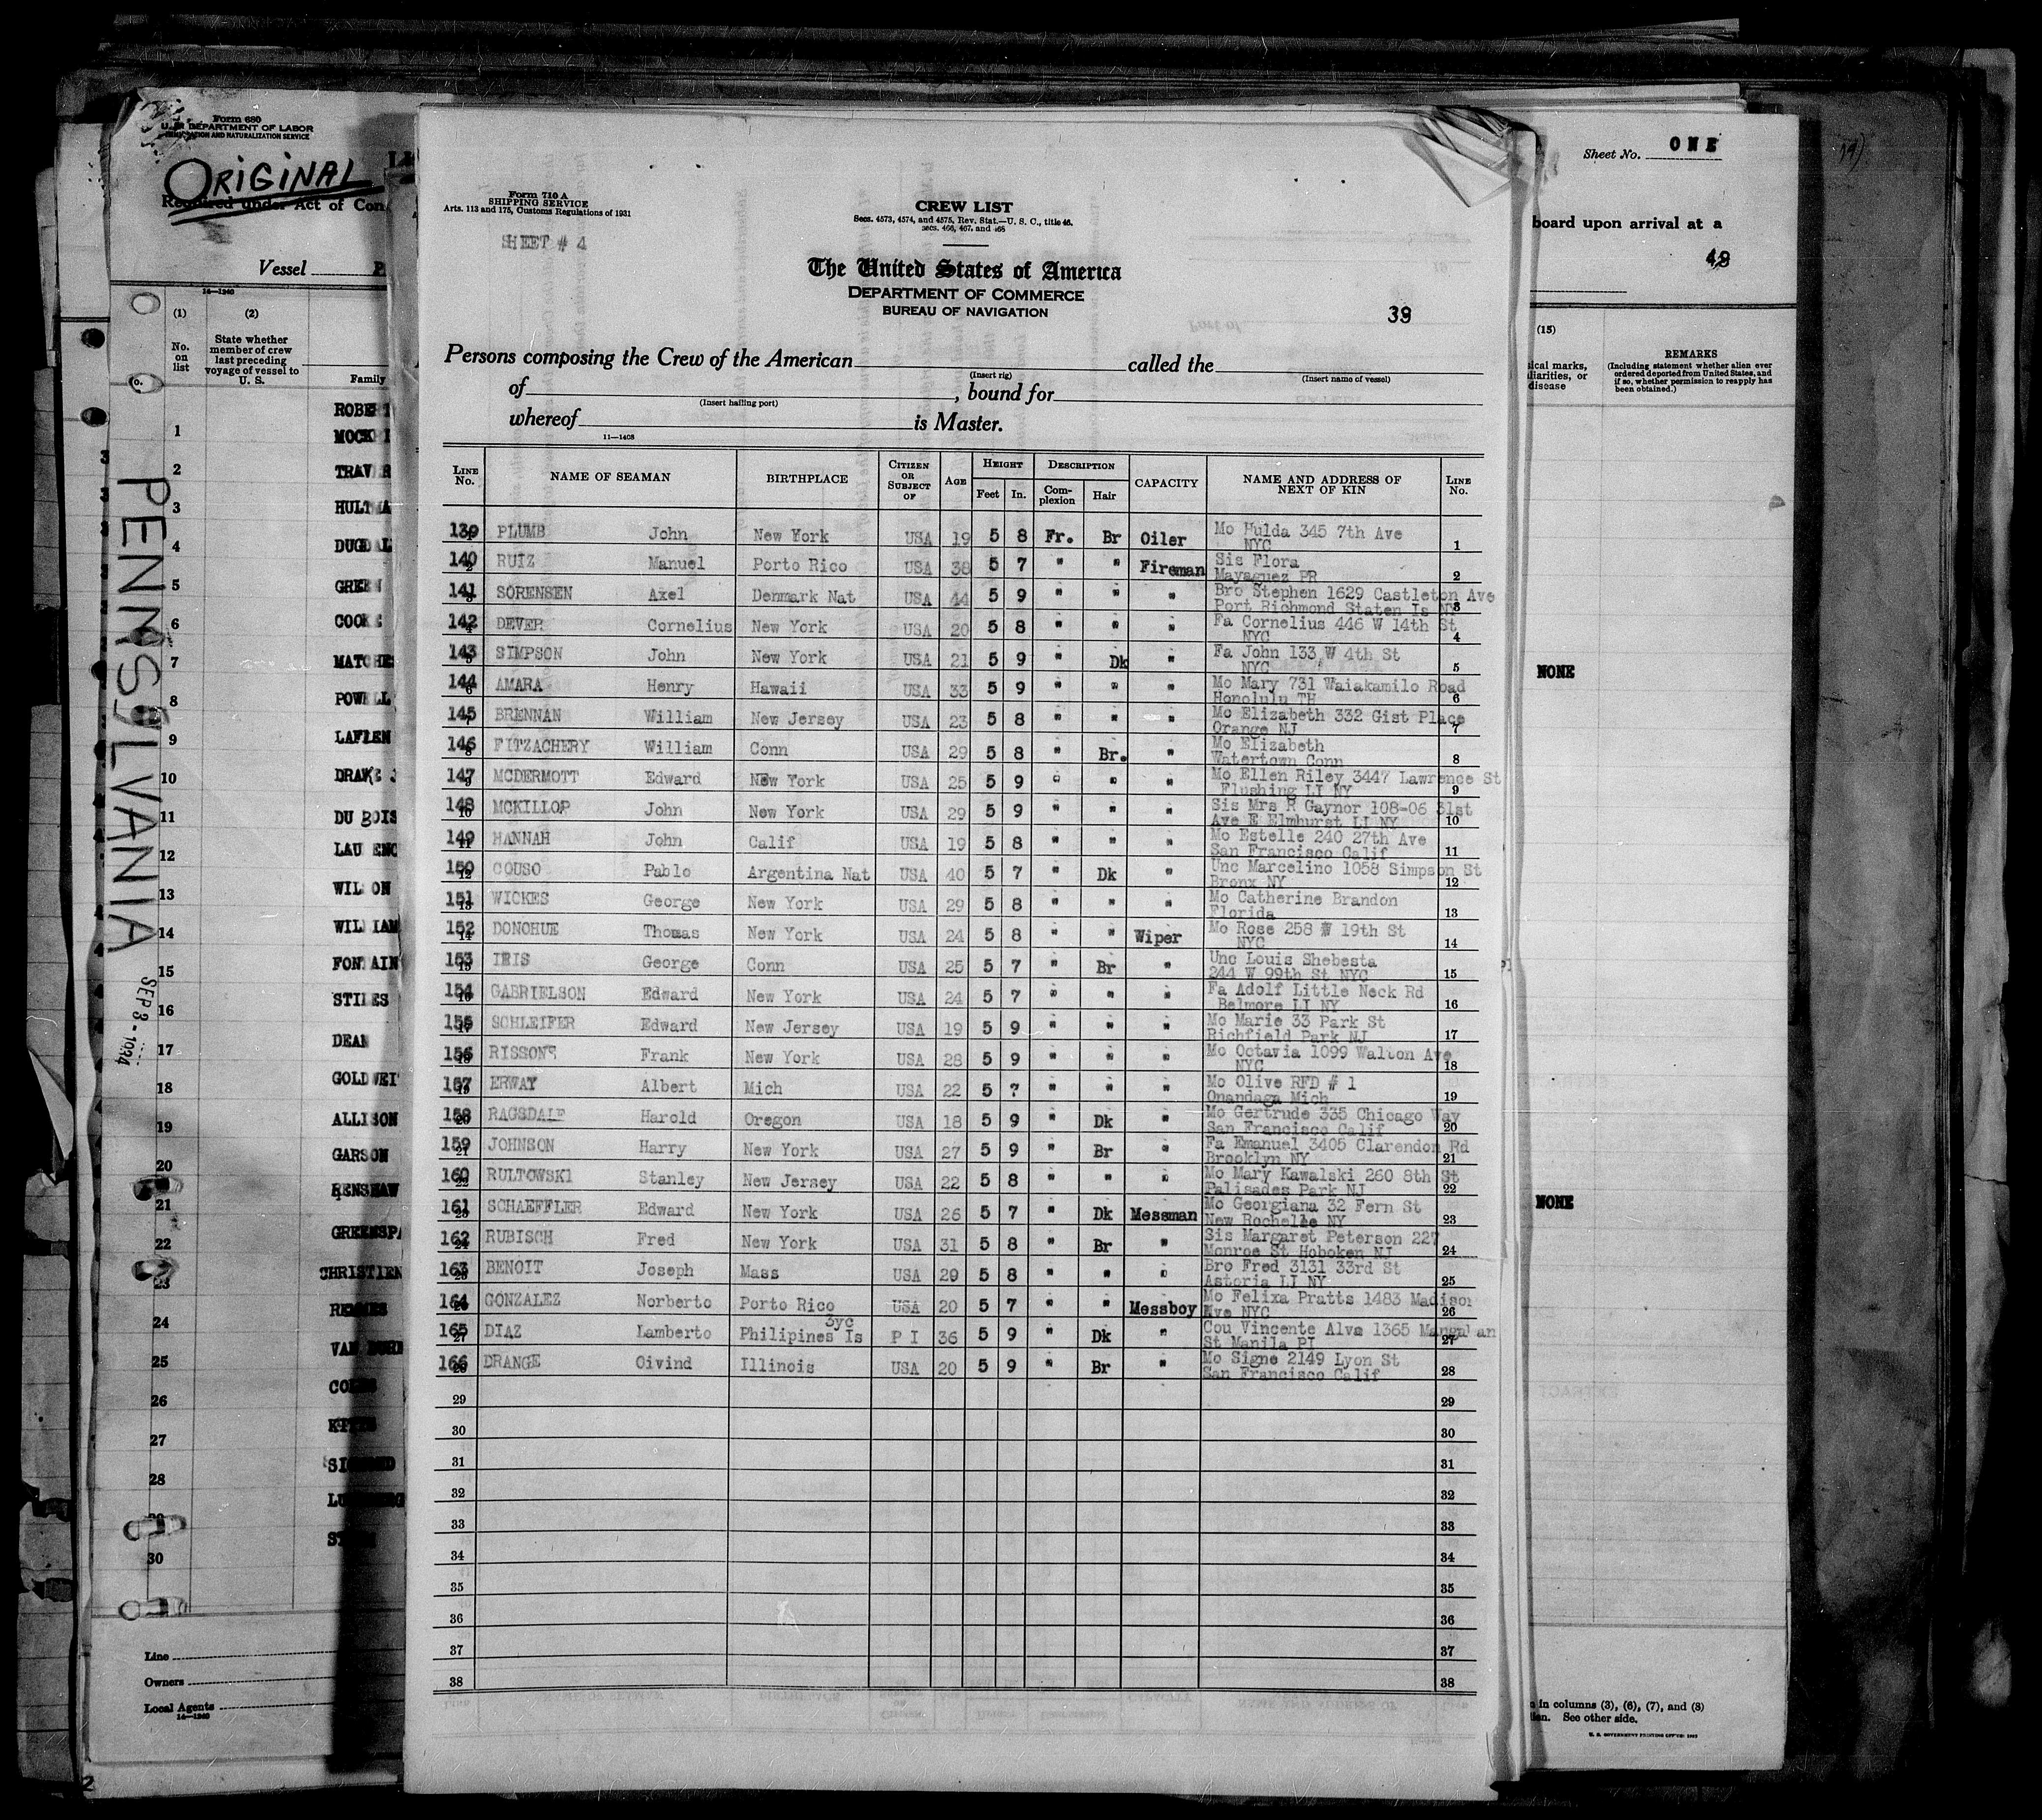 Form 680
U. S. DEPARTMENT OF LABOR
IMMIGRATION AND NATURALIZATION SERVICE
ORIGINAL
Required under Act of Con
Vessel
14—1240
(1) (2)
No. on list
State whether member of crew last preceding voyage of vessel to U. S.
Family
ROBERT
1 MOCKRI
2 TRAVER
3 HULTMA
4 DUGDAL
5 GREEN
6 COOKE
7 MATCHE
8 POWELL
9 LAFLEN
10 DRAKE J
11 DU BOIS
12 LAU ENC
13 WILSON
14 WILLIAM
15 FONTAIN
16 STILES
17 DEAN
18 GOLDWEI
19 ALLISON
20 GARSON
21 RENSHAW
22 GREENSPA
23 CHRISTIEN
24
25 VAN
26
27
28
30
PENNSYLVANIA
SEP 3 - 1934
Line
Owners
Local Agents
14—1240
2
Form 710 A
SHIPPING SERVICE
Arts. 113 and 175, Customs Regulations of 1931
SHEET # 4
CREW LIST
Secs. 4573, 4574, and 4575, Rev. Stat.—U. S. C., title 46,
secs. 466, 467, and 468
The United States of America
DEPARTMENT OF COMMERCE
BUREAU OF NAVIGATION
39
Persons composing the Crew of the American called the
(Insert rig) (Insert name of vessel)
of , bound for
(Insert hailing port)
whereof is Master.
11—1408
LINE No. NAME OF SEAMAN BIRTHPLACE CITIZEN OR SUBJECT OF AGE HEIGHT Feet In. DESCRIPTION Complexion Hair CAPACITY NAME AND ADDRESS OF NEXT OF KIN LINE No.
139 PLUMB John New York USA 19 5 8 Fr. Br Oiler Mo Hulda 345 7th Ave NYC 1
140 RUIZ Manuel Porto Rico USA 38 5 7 " " Fireman Sis Flora Mayaguez PR 2
141 SORENSEN Axel Denmark Nat USA 44 5 9 " " " Bro Stephen 1629 Castleton Ave Port Richmond Staten Is NY 3
142 DEVER Cornelius New York USA 20 5 8 " " " Fa Cornelius 446 W 14th St NYC 4
143 SIMPSON John New York USA 21 5 9 " Dk " Fa John 133 W 4th St NYC 5
144 AMARA Henry Hawaii USA 33 5 9 " " " Mo Mary 731 Waiakamilo Road Honolulu TH 6
145 BRENNAN William New Jersey USA 23 5 8 " " " Mo Elizabeth 332 Gist Place Orange NJ 7
146 FITZACHERY William Conn USA 29 5 8 " Br. " Mo Elizabeth Watertown Conn 8
147 MCDERMOTT Edward New York USA 25 5 9 " " " Mo Ellen Riley 3447 Lawrence St Flushing LI NY 9
148 MCKILLOP John New York USA 29 5 9 " " " Sis Mrs R Gaynor 108-06 31st Ave E Elmhurst LI NY 10
149 HANNAH John Calif USA 19 5 8 " " " Mo Estelle 240 27th Ave San Francisco Calif 11
150 COUSO Pablo Argentina Nat USA 40 5 7 " Dk " Unc Marcelino 1058 Simpson St Bronx NY 12
151 WICKES George New York USA 29 5 8 " " " Mo Catherine Brandon Florida 13
152 DONOHUE Thomas New York USA 24 5 8 " " Wiper Mo Rose 258 W 19th St NYC 14
153 IRIS George Conn USA 25 5 7 " Br " Unc Louis Shebesta 244 W 99th St NYC 15
154 GABRIELSON Edward New York USA 24 5 7 " " " Fa Adolf Little Neck Rd Belmore LI NY 16
155 SCHLEIFER Edward New Jersey USA 19 5 9 " " " Mo Marie 33 Park St Richfield Park NJ 17
156 RISSONE Frank New York USA 28 5 9 " " " Mo Octavia 1099 Walton Ave NYC 18
157 ERWAY Albert Mich USA 22 5 ? " " " Mo Olive RFD # 1 Onandaga Mich 19
158 RAGSDALE Harold Oregon USA 18 5 9 " Dk " Mo Gertrude 335 Chicago Way San Francisco Calif 20
159 JOHNSON Harry New York USA 27 5 9 " Br " Fa Emanuel 3405 Clarendon Rd Brooklyn NY 21
160 RULTOWSKI Stanley New Jersey USA 22 5 8 " " " Mo Mary Kawalski 260 8th St Palisades Park NJ 22
161 SCHAEFFLER Edward New York USA 26 5 7 " Dk Messman Mo Georgiana 32 Fern St New Rochelle NY 23
162 RUBISCH Fred New York USA 31 5 8 " Br " Sis Margaret Peterson 227 Monroe St Hoboken NJ 24
163 BENOIT Joseph Mass USA 29 5 8 " " " Bro Fred 3131 33rd St Astoria LI NY 25
164 GONZALEZ Norberto Porto Rico USA 20 5 7 " " Messboy Mo Felixa Pratts 1483 Madison Ave NYC 26
165 DIAZ Lamberto Philipines Is 3yc P I 36 5 9 " Dk " Cou Vincente Alva 1365 St Manila PI 27
166 DRANGE Oivind Illinois USA 20 5 9 " Br " Mo Signe 2149 Lyon St San Francisco Calif 28
29 29
30 30
31 31
32 32
33 33
34 34
35 35
36 36
37 37
38 38
Sheet No. ONE
board upon arrival at a
(15)
REMARKS
(Including statement whether alien ever ordered deported from United States, and if so, whether permission to reapply has been obtained.)
sical marks,
liarities, or
disease
NONE
NONE
in columns (3), (6), (7), and (8)
See other side.
U. S. GOVERNMENT PRINTING OFFICE